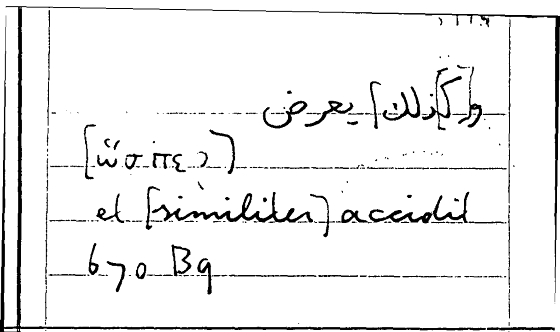 و[كذلك] يعرض
[ὥσπερ]
et [similiter] accidit
670 B9